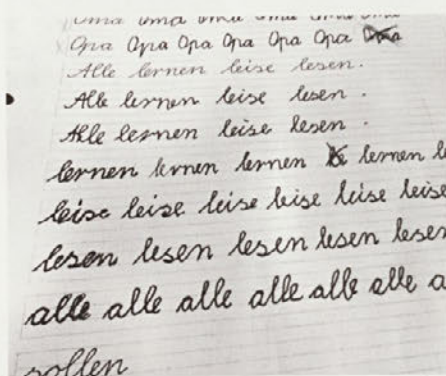 Oma Oma Oma Oma Oma Oma
Opa Opa Opa Opa Opa Opa
Alle lernen leise lesen.
Alle lernen leise lesen.
Alle lernen leise lesen.
lernen lernen lernen lernen
leise leise leise leise leise leise
lesen lesen lesen lesen lesen
alle alle alle alle alle alle
sollen